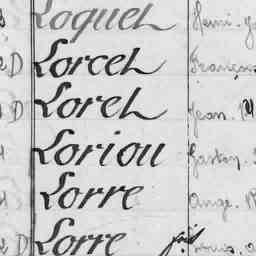 Loquet Henri
D Lorcet François
D Loret Jean
Loriou Gaston
Lorre Ange
2 D Lorre Louis